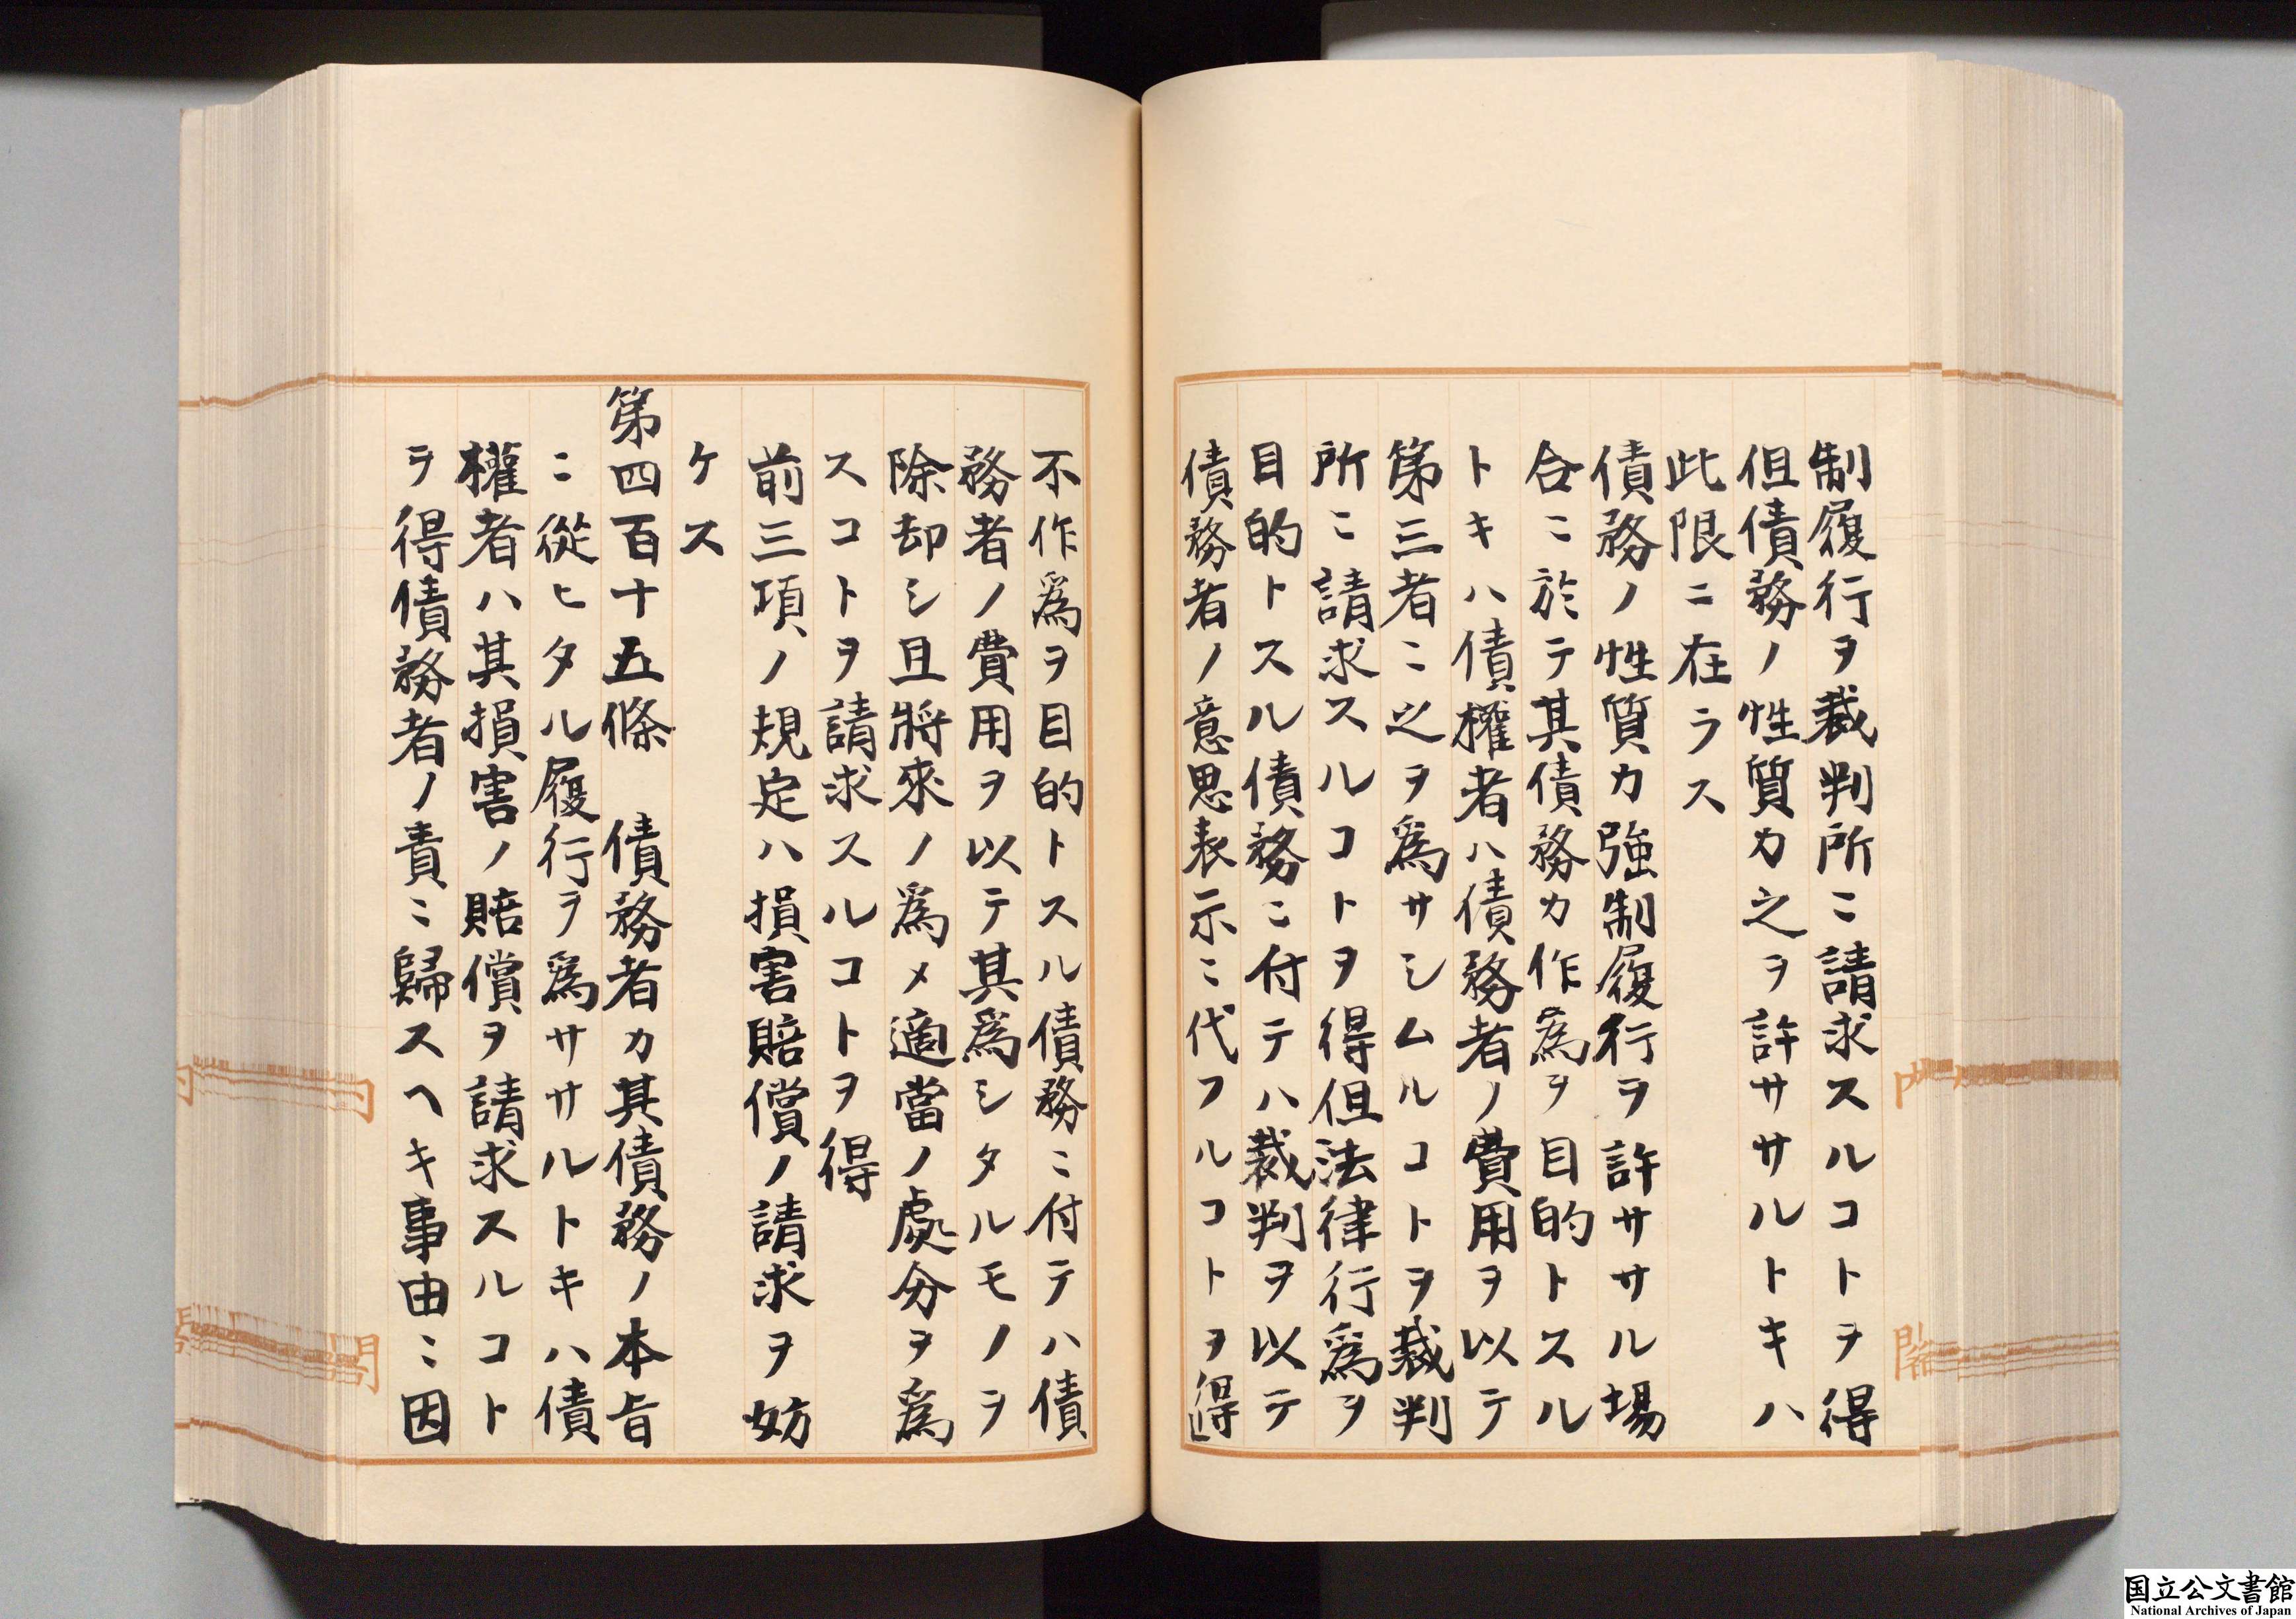 制履行ヲ裁判所ニ請求スルコトヲ得
但債務ノ性質カ之ヲ許ササルトキハ
此限ニ在ラス
債務ノ性質カ強制履行ヲ許ササル場
合ニ於テ其債務カ作為ヲ目的トスル
トキハ債權者ハ債務者ノ費用ヲ以テ
第三者ニ之ヲ爲サシムルコトヲ裁判
所ニ請求スルコトヲ得但法律行爲ヲ
目的トスル債務ニ付テハ裁判ヲ以テ
債務者ノ意思表示ニ代フルコトヲ得
不作爲ヲ目的トスル債務ニ付テハ債
務者ノ費用ヲ以テ其爲シタルモノヲ
除却シ且將來ノ爲メ適當ノ處分ヲ爲
スコトヲ請求スルコトヲ得
前三項ノ規定ハ損害賠償ノ請求ヲ妨
ケス
第四百十五條 債務者カ其債務ノ本旨
ニ從ヒタル履行ヲ爲ササルトキハ債
權者ハ其損害ノ賠償ヲ請求スルコト
ヲ得債務者ノ責ニ歸スヘキ事由ニ因
国立公文書館
National Archives of Japan